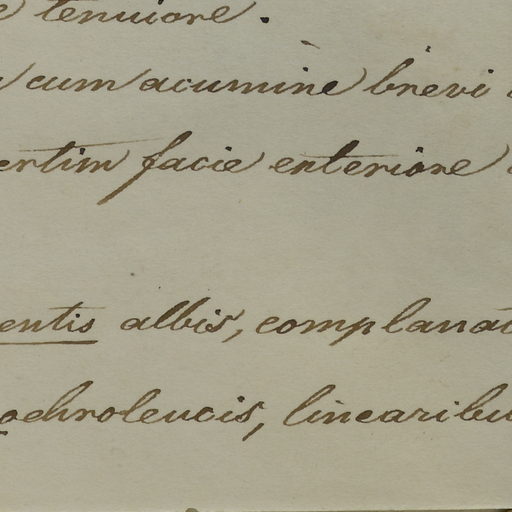 e tenuiore.
cum acumine brevi
ertim facie exteriore
entis albis, complanat
ochroleucis, linearibu